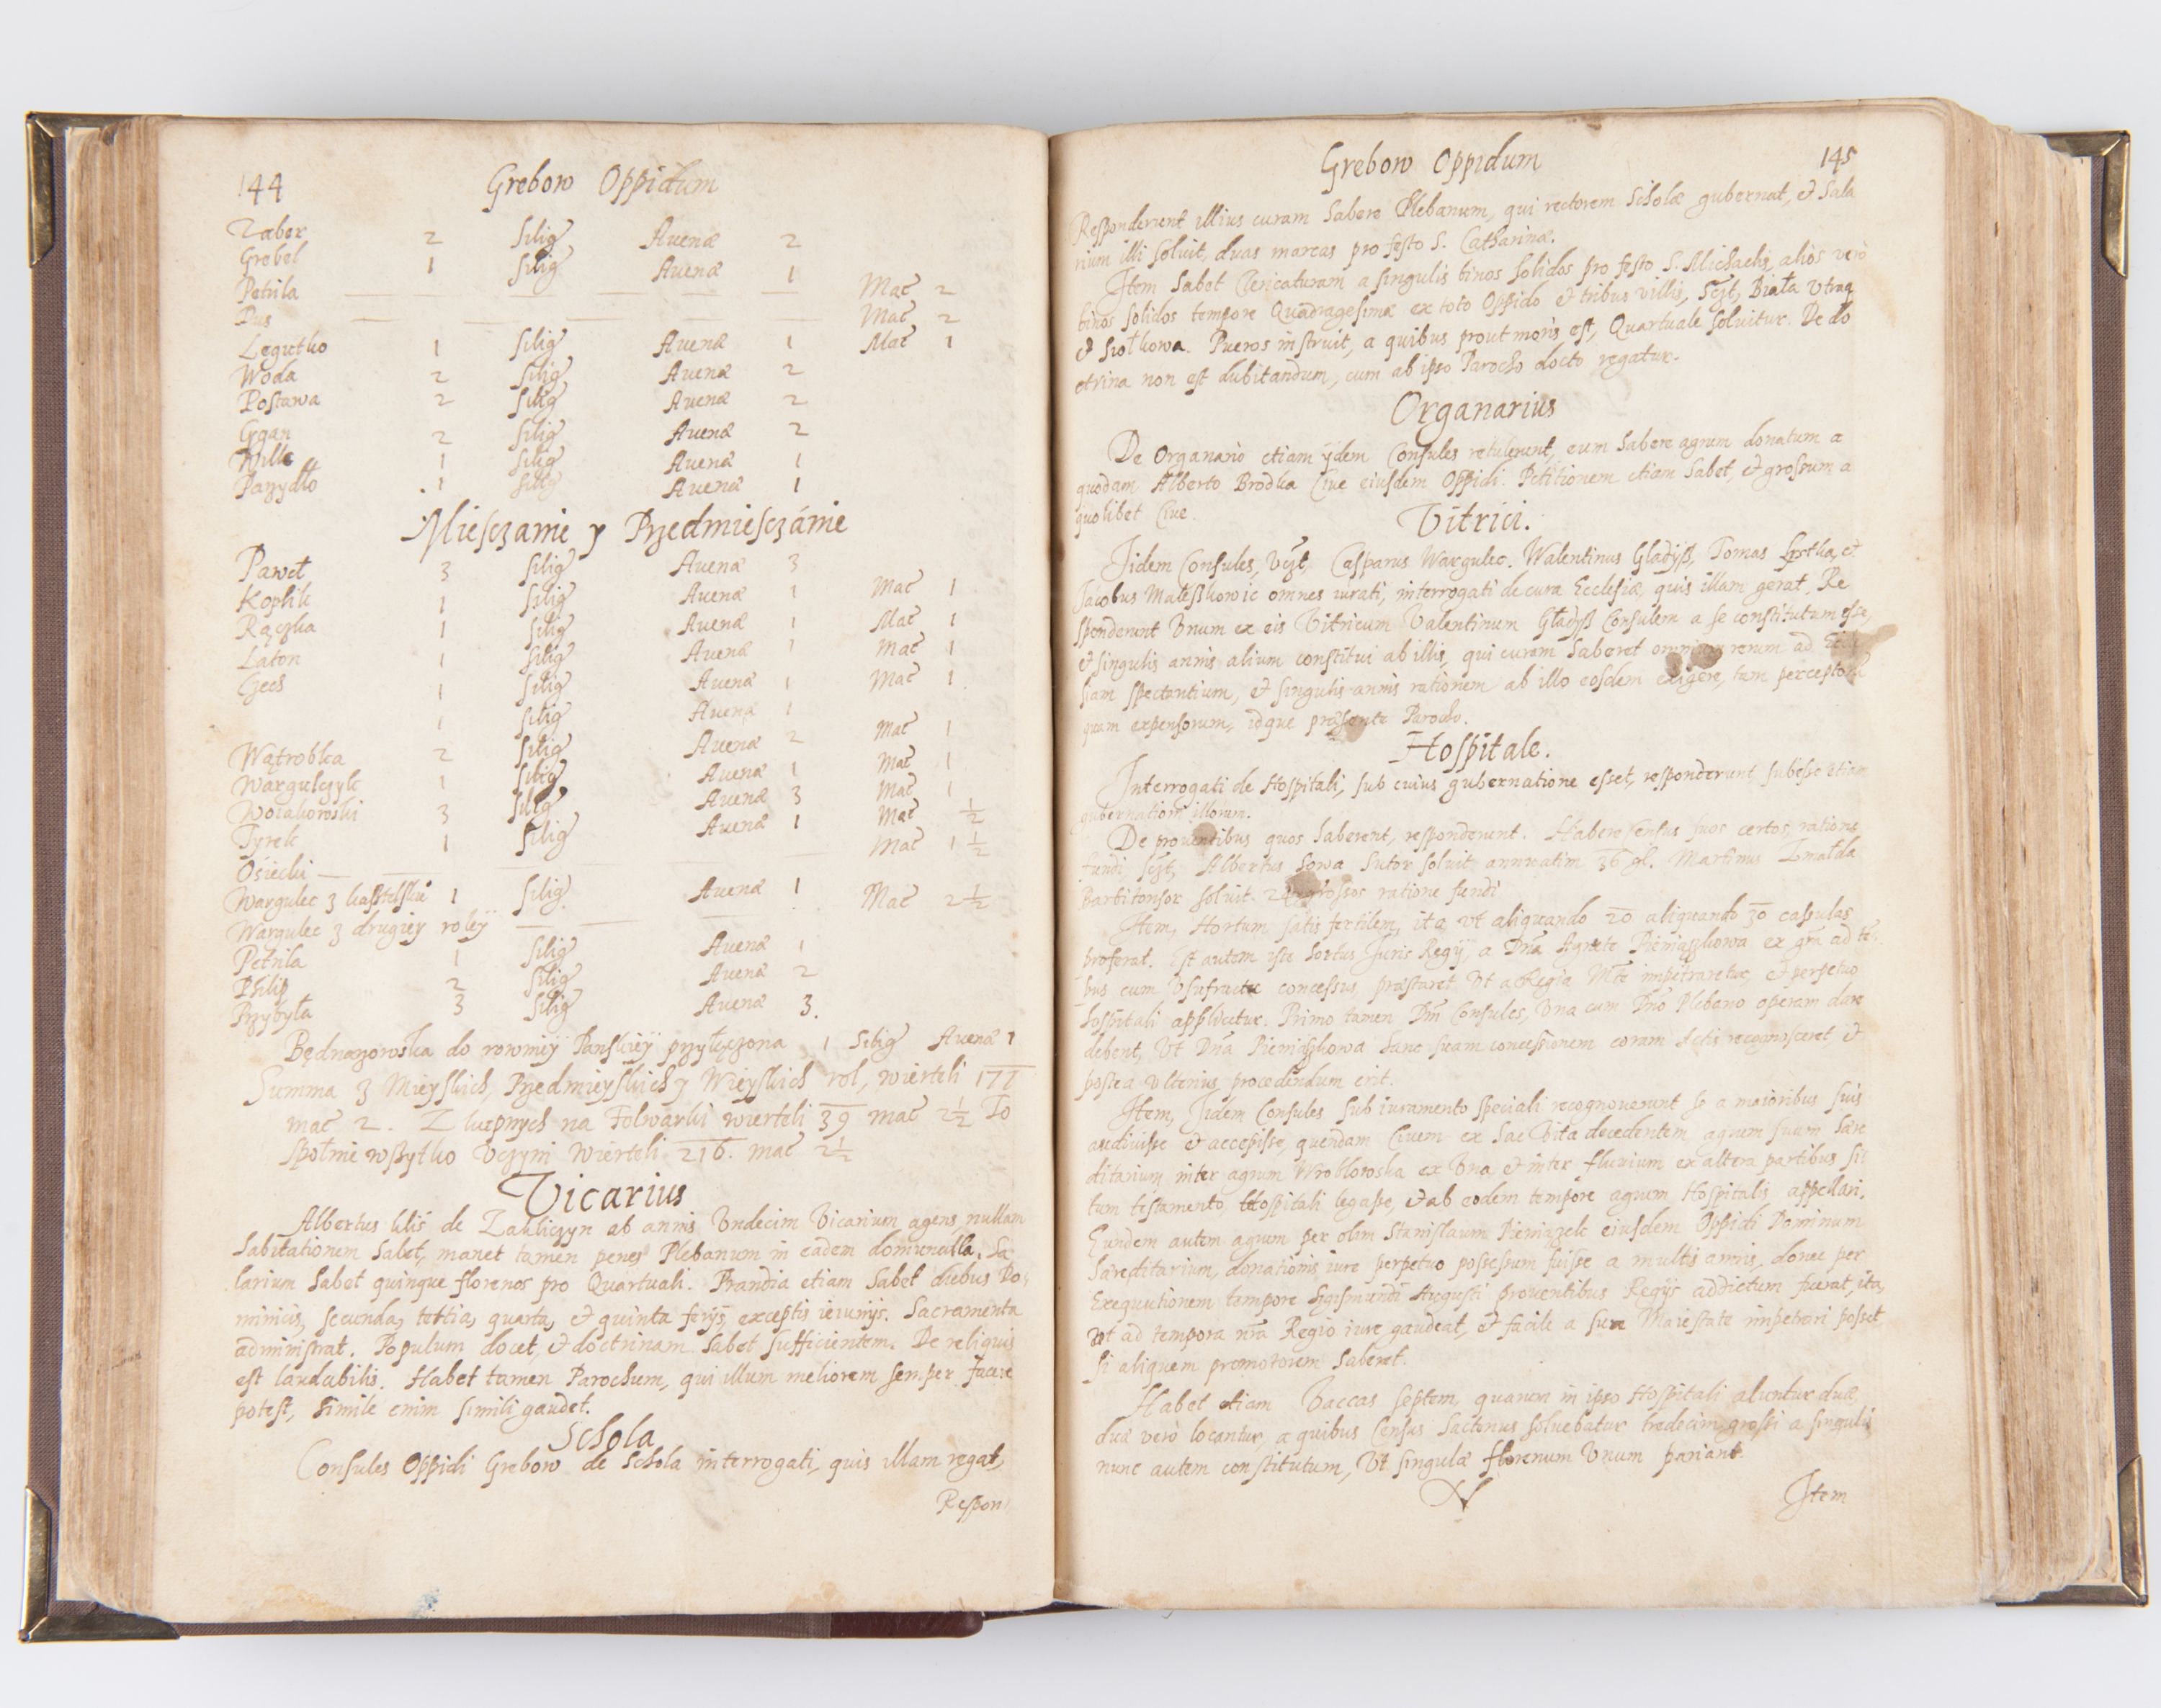 144 Grebow Oppidum
Zaber 2 Silig Auenæ 2
Grebel 1 Silig Auenæ 1
Petrila Mac 2
Pus Mac 2
Legutko 1 Silig Auenæ 1 Mac 1
Woda 2 Silig Auenæ 2
Postawa 2 Silig Auenæ 2
Cygan 2 Silig Auenæ 2
Wilk 1 Silig Auenæ 1
Pazydło 1 Silig Auenæ 1
Miesczanie y Przedmiesczánie
Paweł 3 Silig Auenæ 3
Koplik 1 Silig Auenæ 1 Mac 1
Rączka 1 Silig Auenæ 1 Mac 1
Laton 1 Silig Auenæ 1 Mac 1
Czech 1 Silig Auenæ 1 Mac 1
1 Silig Auenæ 1
Wątrobka 2 Silig Auenæ 2 Mac 1
Wargulczyk 1 Silig Auenæ 1 Mac 1
3 Silig Auenæ 3 Mac 1
Tyrek 1 Silig Auenæ 1 Mac ½
Osiecki Mac 1½
Wargulec z 1 Silig Auenæ 1 Mac 2½
Wargulec z drugiey roley
Petrila 1 Silig Auenæ 1
Philip 2 Silig Auenæ 2
Przybyła 3 Silig Auenæ 3.
Będnarzowska do rowniey Panskiey przyłączona 1 Silig Auenæ 1
Summa z Mieyskich, Przedmieyskich y Wieyskich rol, wierteli 177
mac 2. Z łupnych na Folwarki wierteli 39 mac 2½ To
społnie wszytko vczyni wierteli 216. mac 2½
Vicarius
Albertus Klis de Zakliczyn ab annis Vndecim Vicarium agens, nullam
habitationem habet, manet tamen penes Plebanum in eadem domuncula. Sa
larium habet quinque florenos pro Quartuali. Prandia etiam habet diebus Do,
minicis, secunda, tertia, quarta, et quinta ferijs, exceptis ieiunijs. Sacramenta
administrat. Populum docet, et doctrinam habet sufficientem. De reliquis
est laudabilis. Habet tamen Parochum, qui illum meliorem semper facere
potest, simile enim simili gaudet.
Schola
Consules Oppidi Grebow de Schola interrogati, quis illam regat,
Respon
Grebow Oppidum 145
Responderunt illius curam habere Plebanum, qui rectorem Scholæ gubernat, et Sala
rium illi soluit, duas marcas pro festo S. Catharinæ.
Item habet Clericaturam a singulis binos solidos pro festo S. Michaelis, alios vero
binos solidos tempore Quadragesimæ ex toto Oppido et tribus villis, sczt, Biała vtraq
et Siołkowa. Pueros instruit, a quibus prout moris est, Quartuale soluitur. De do
ctrina non est dubitandum, cum ab ipso Parocho docto regatur.
Organarius
De Organario etiam ijdem Consules retulerunt, eum habere agrum donatum a
quodam Alberto Brodka Ciue eiusdem Oppidi. Petitionem etiam habet, et grossum a
quolibet Ciue.
Vitrici.
Iidem Consules, vczt, Casparus Wargulec. Walentinus Gładysz, Tomas et
Jacobus omnes iurati, interrogati de cura Ecclesiæ, quis illam gerat. Re
sponderunt Vnum ex eis Vitricum Valentinum Gładysz Consulem a se constitutum esse,
et singulis annis alium constitui ab illis, qui curam haberet omnium rerum ad
siam spectantium, et singulis annis rationem ab illo eosdem exigere, tam perceptorum
quam expensorum, idque præsente Parocho.
Hospitale.
Interrogati de Hospitali, sub cuius gubernatione esset, responderunt subesse etiam
gubernationi illorum.
De prouentibus quos haberent, responderunt. Habere census suos certos, ratione
fundi sczt, Albertus Sowa Sutor soluit annuatim 36 gl. Martinus
Barbitonsor soluit grossos ratione fundi
Item, Hortum satis fertilem, ita vt aliquando 20 aliquando 30 capsulas
proferat. Est autem iste hortus Juris Regij, a Dna Agnete Pieniążkowa ex gra ad
bus cum Vsufructu concessus, præstaret vt a Regia Mte impetraretur, et perpetuo
hospitali applicetur. Primo tamen Dni Consules, Vna cum Dno Plebano operam dare
debent, Vt Dna Pieniążkowa hanc suam concessionem coram Actis recognosceret, et
postea vlterius procedendum erit.
Item, Iidem Consules sub iuramento speciali recognouerunt se a maioribus suis
audiuisse et accepisse, quendam Ciuem ex hac Vita decedentem agrum suum hære
ditarium inter agrum Wroblowska ex Vna, et inter fluuium ex altera partibus si
tum testamento, Hospitali legasse, et ab eodem tempore agrum Hospitalis appellari.
Eundem autem agrum per olim Stanislaum Pieniązek eiusdem Oppidi Dominum
hæreditarium, donationis iure perpetuo possessum fuisse a multis annis, donec per
Exequutionem tempore Sigismundi Augusti prouentibus Regijs addictum fuerat, ita,
vt ad tempora nra Regio iure gaudeat, et facile a sua Maiestate impetrari posset
si aliquem promotorem haberet.
Habet etiam Vaccas septem, quarum in ipso Hospitali aluntur duæ,
duæ verò locantur, a quibus Census hactenus soluebatur tredecim grossi a singulis
nunc autem constitutum, Vt singulæ florenum Vnum pariant.
N Item